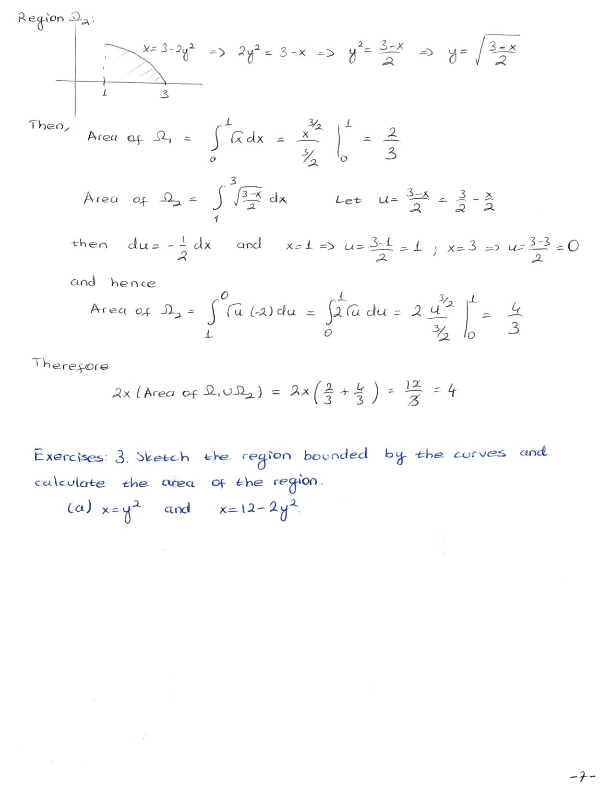 Region Ω₂:
x=3-2y² => 2y² = 3-x => y² = (3-x)/2 => y = √((3-x)/2)
1 3
Then,
Area of Ω₁ = ∫₀¹ √x dx = x^(3/2)/(3/2) |₀¹ = 2/3
Area of Ω₂ = ∫₁³ √((3-x)/2) dx Let u = (3-x)/2 = 3/2 - x/2
then du = -1/2 dx and x=1 => u = (3-1)/2 = 1 ; x=3 => u = (3-3)/2 = 0
and hence
Area of Ω₂ = ∫₁⁰ √u (-2) du = ∫₀¹ 2√u du = 2 u^(3/2)/(3/2) |₀¹ = 4/3
Therefore
2x (Area of Ω₁∪Ω₂) = 2x (2/3 + 4/3) = 12/3 = 4
Exercises: 3. Sketch the region bounded by the curves and
calculate the area of the region.
(a) x=y² and x=12-2y².
-7-